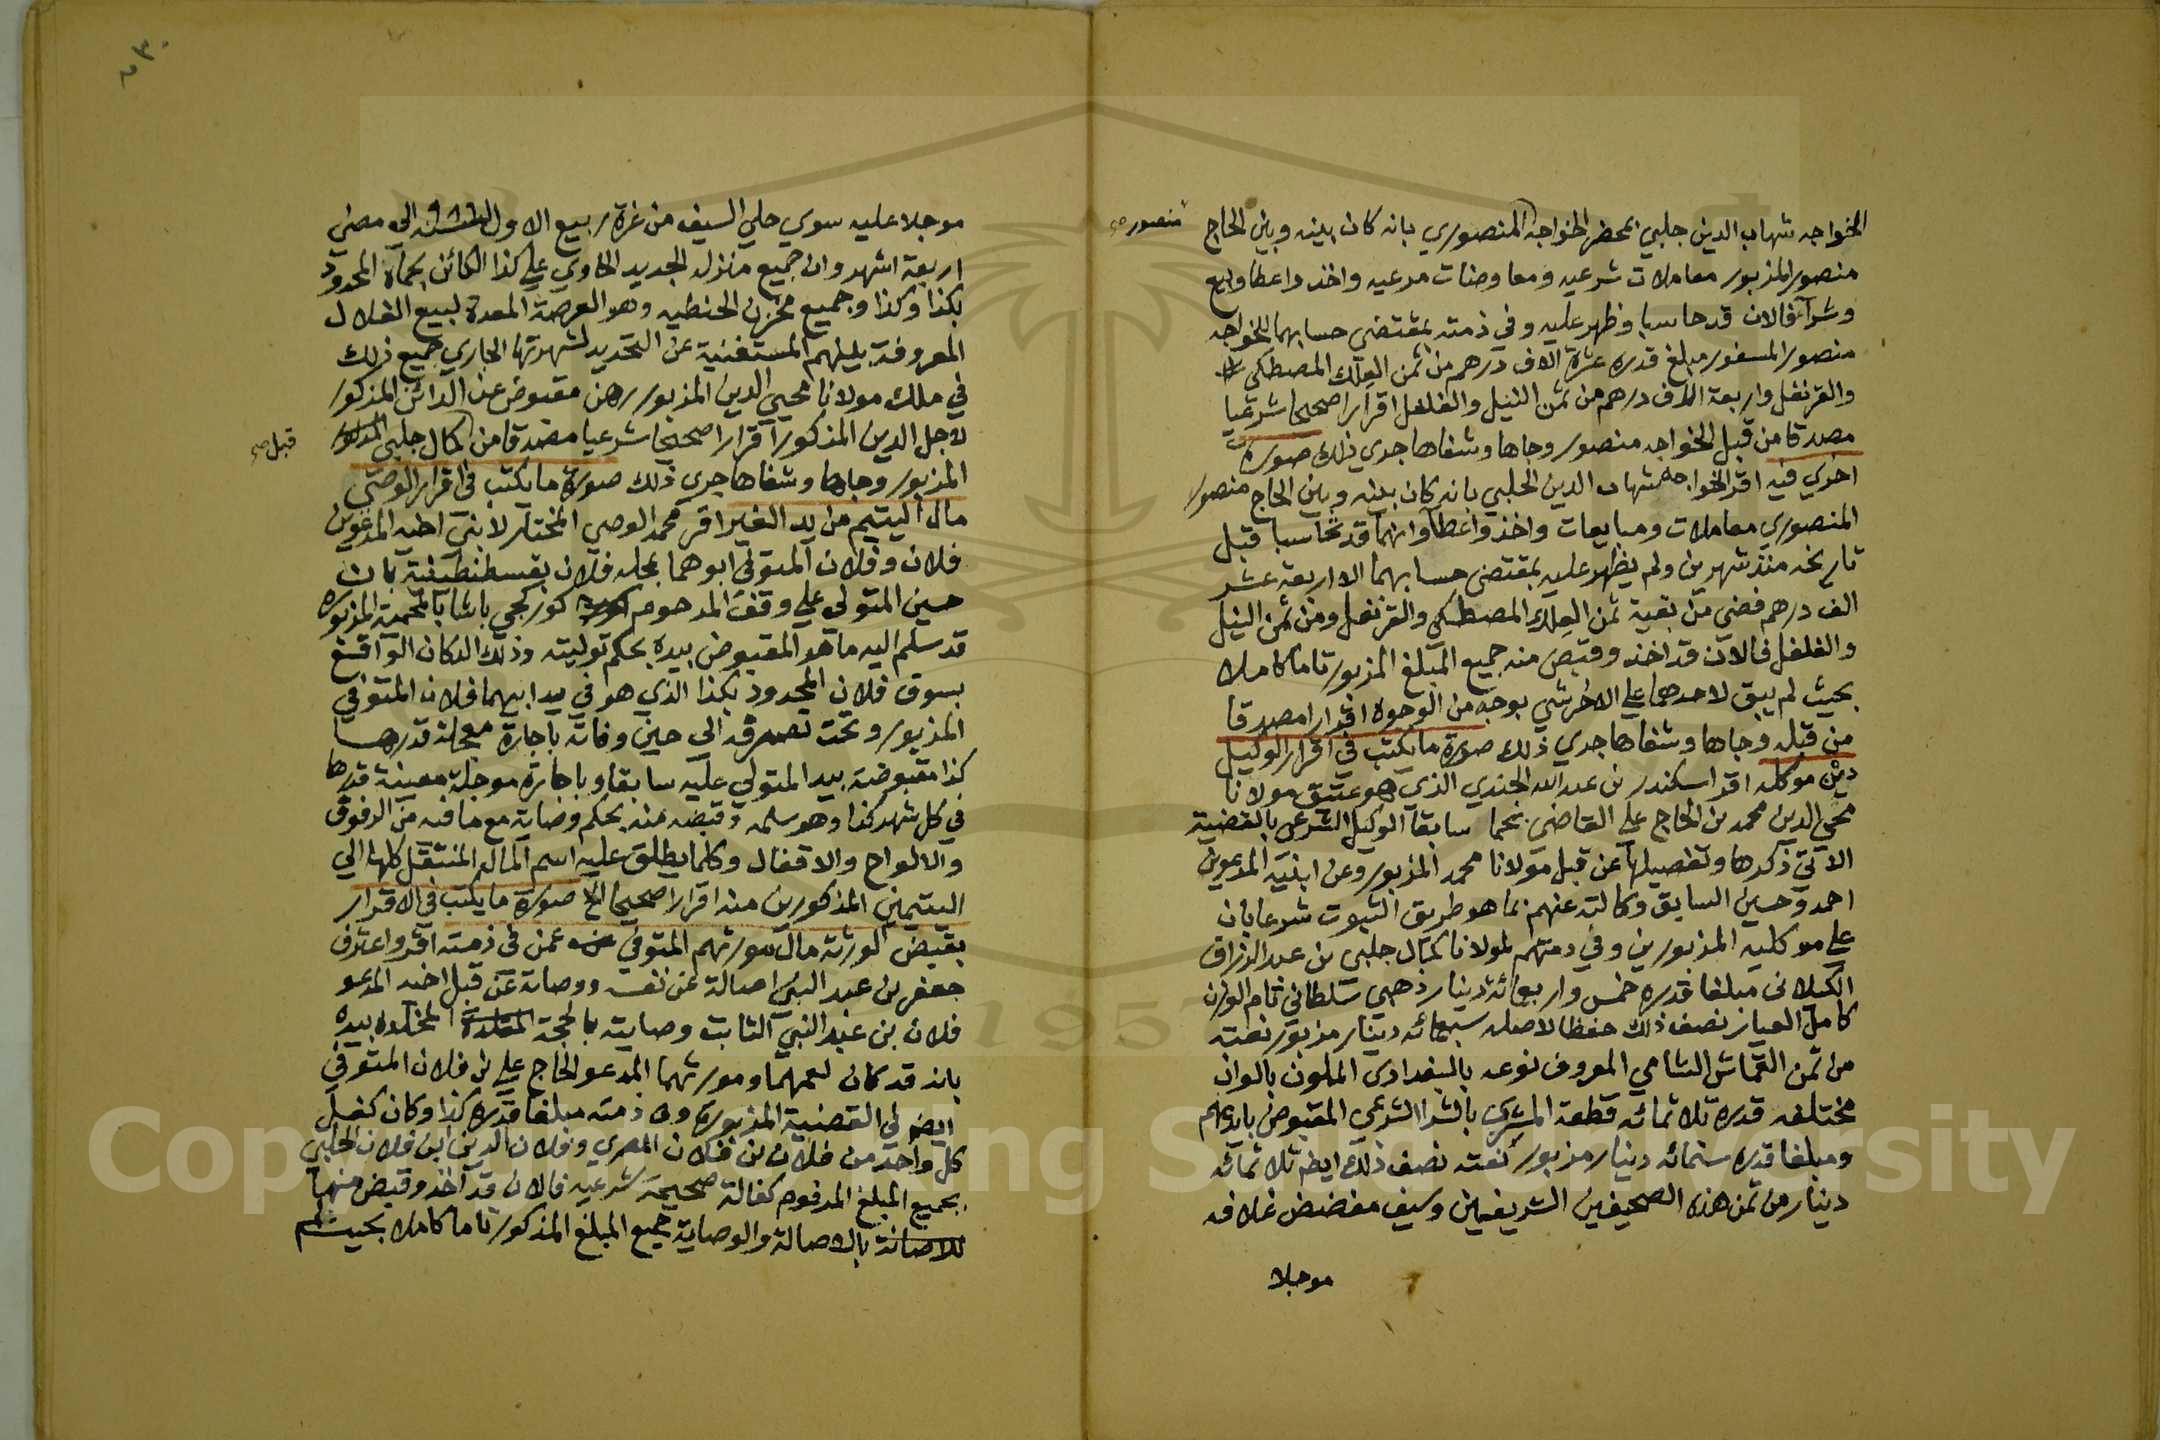 الخواجه شهاب الدين جلبي بمحضر الخواجه المنصوري بانه كان بينه وبين الحاج
منصور صح
منصور المزبور معاملات شرعيه ومعاوضات مرعيه واخذ واعطا وبيع
وشرآء فالان قد حاسبا وظهر عليه وفي ذمته بمقتضي حسابهما للخواجه
منصور المسفور مبلغ قدره عشرة الاف درهم من ثمن العلك المصطكي
والقرنفل واربعة الاف درهم من ثمن النيل والفلفل اقرارا صحيحا شرعيا
مصدقا من قبل الخواجه منصور وجاها وشفاها جري ذلك صورة
اخري فيه اقر الخواجه شهاب الدين الحلبي بانه كان بينه وبين الحاج منصور
المنصوري معاملات ومبايعات واخذ واعطآ وانهما قد تحاسبا قبل
تاريخه منذ شهرين ولم يظهر عليه بمقتضي حسابهما الا اربعة عشر
الف درهم فضي من بقية ثمن العلك المصطكي والقرنفل ومن ثمن النيل
والفلفل فالآن قد اخذ وقبض منه جميع المبلغ المزبور تاما كاملا
بحيث لم يبق لاحدهما علي الاخر شي بوجه من الوجوه اقرارا مصدقا
من قبله وجاها وشفاها جري ذلك صورة ما يكتب في اقرار الوكيل
دين موكله اقر اسكندر بن عبد الله الجندي الذي هو عتيق مولانا
محيي الدين محمد بن الحاج علي القاضي بحما سابقا الوكيل الشرعي بالقضية
الاتي ذكرها وتفصيلها عن قبل مولانا محمد المزبور وعن ابنيه المدعوين
احمد وحسين السابق وكالته عنهم بما هو طريق الثبوت شرعا بان
علي موكليه المزبورين وفي ذمتهم لمولانا كمال جلبي بن عبد الرزاق
الكيلاني مبلغا قدره خمس واربعمائة دينار ذهبي سلطاني تام الوزن
كامل العيار نصف ذلك حفظا لاصله سبعمائه دينار مزبور نعته
من ثمن القماش الشامي المعروف نوعه بالبغدادي الملون بالوان
مختلفه قدره ثلاثمائه قطعة المشتري بالشرا الشرعي المقبوض بايديهم
ومبلغا قدره ستمائه دينار مزبور نعته نصف ذلك ايضا ثلاثمائه
دينار من ثمن هذه الصحيفين الشريفين وسيف مفضض غلافه
موجلا
موجلا عليه سوي حلي السيف من غرة ربيع الاول الي مضي
اربعة اشهر وان جميع منزله الجديد الحاوي علي كذا الكائن بحماة المحدود
بكذا وكذا وجميع مخزن الحنطيه وهو العرصة المعدة لبيع الغلال
المعروفة بينهم المستغنية عن التحديد لشهرتها الجاري جميع ذلك
في ملك مولانا محيي الدين المزبور رهن مقبوض عند الدائن المذكور
لاجل الدين المذكور اقرارا صحيحا شرعيا مصدقا من كمال جلبي
قبل صح
المزبور وجاها وشفاها جري ذلك صورة ما يكتب في اقرار الوصي
مال اليتيم من يد الغير اقر محمد الوصي المختار لابني اخيه المدعوين
فلان وفلان المتوفي ابوهما بمحله فلان بقسطنطينية بان
حسين المتولي علي وقف المرحوم كوركجي باشا بالمحمية المزبورة
قد سلم اليه ما هو المقبوض بيده بحكم توليته وذلك الدكان الواقع
بسوق فلان المحدود بكذا الذي هو في يد ابيهما فلان المتوفي
المزبور وتحت تصرفه الي حين وفاته باجارة معجلة قدرها
كذا مقبوضة بيد المتولي عليه سابقا وباجارة موجلة معينة قدرها
في كل شهر كذا وهو سلمه وقبضه منه بحكم وصايته مع ما فيه من الرفوف
والالواح والاقفال وكلما يطلق عليه اسم المال المنتقل كلها الي
اليتيمين المذكورين منه اقرارا صحيحا الخ صورة ما يكتب في الاقرار
بقبض الورثه مال مورثهم المتوفي عمن في ذمته اقر واعترف
جعفر بن عبد النبي اصالة عن نفسه ووصاية عن قبل اخيه المدعو
فلان بن عبد النبي الثابت وصايته بالحجة المخلده بيده
بانه قد كان لعمهما ومورثهما المدعو الحاج علي بن فلان المتوفي
ايضا في القضية المزبورة وفي ذمته مبلغا قدره كذا وكان كفيل
كل واحد من فلان بن فلان المصري وفلان الدين ابن فلان الحلبي
بجميع المبلغ المرقوم كفالة صحيحة شرعيه فالان قد اخذ وقبض منهما
بالاصالة والوصاية جميع المبلغ المذكور تاما كاملا بحيث لم
Copyright © King Saud University
1957